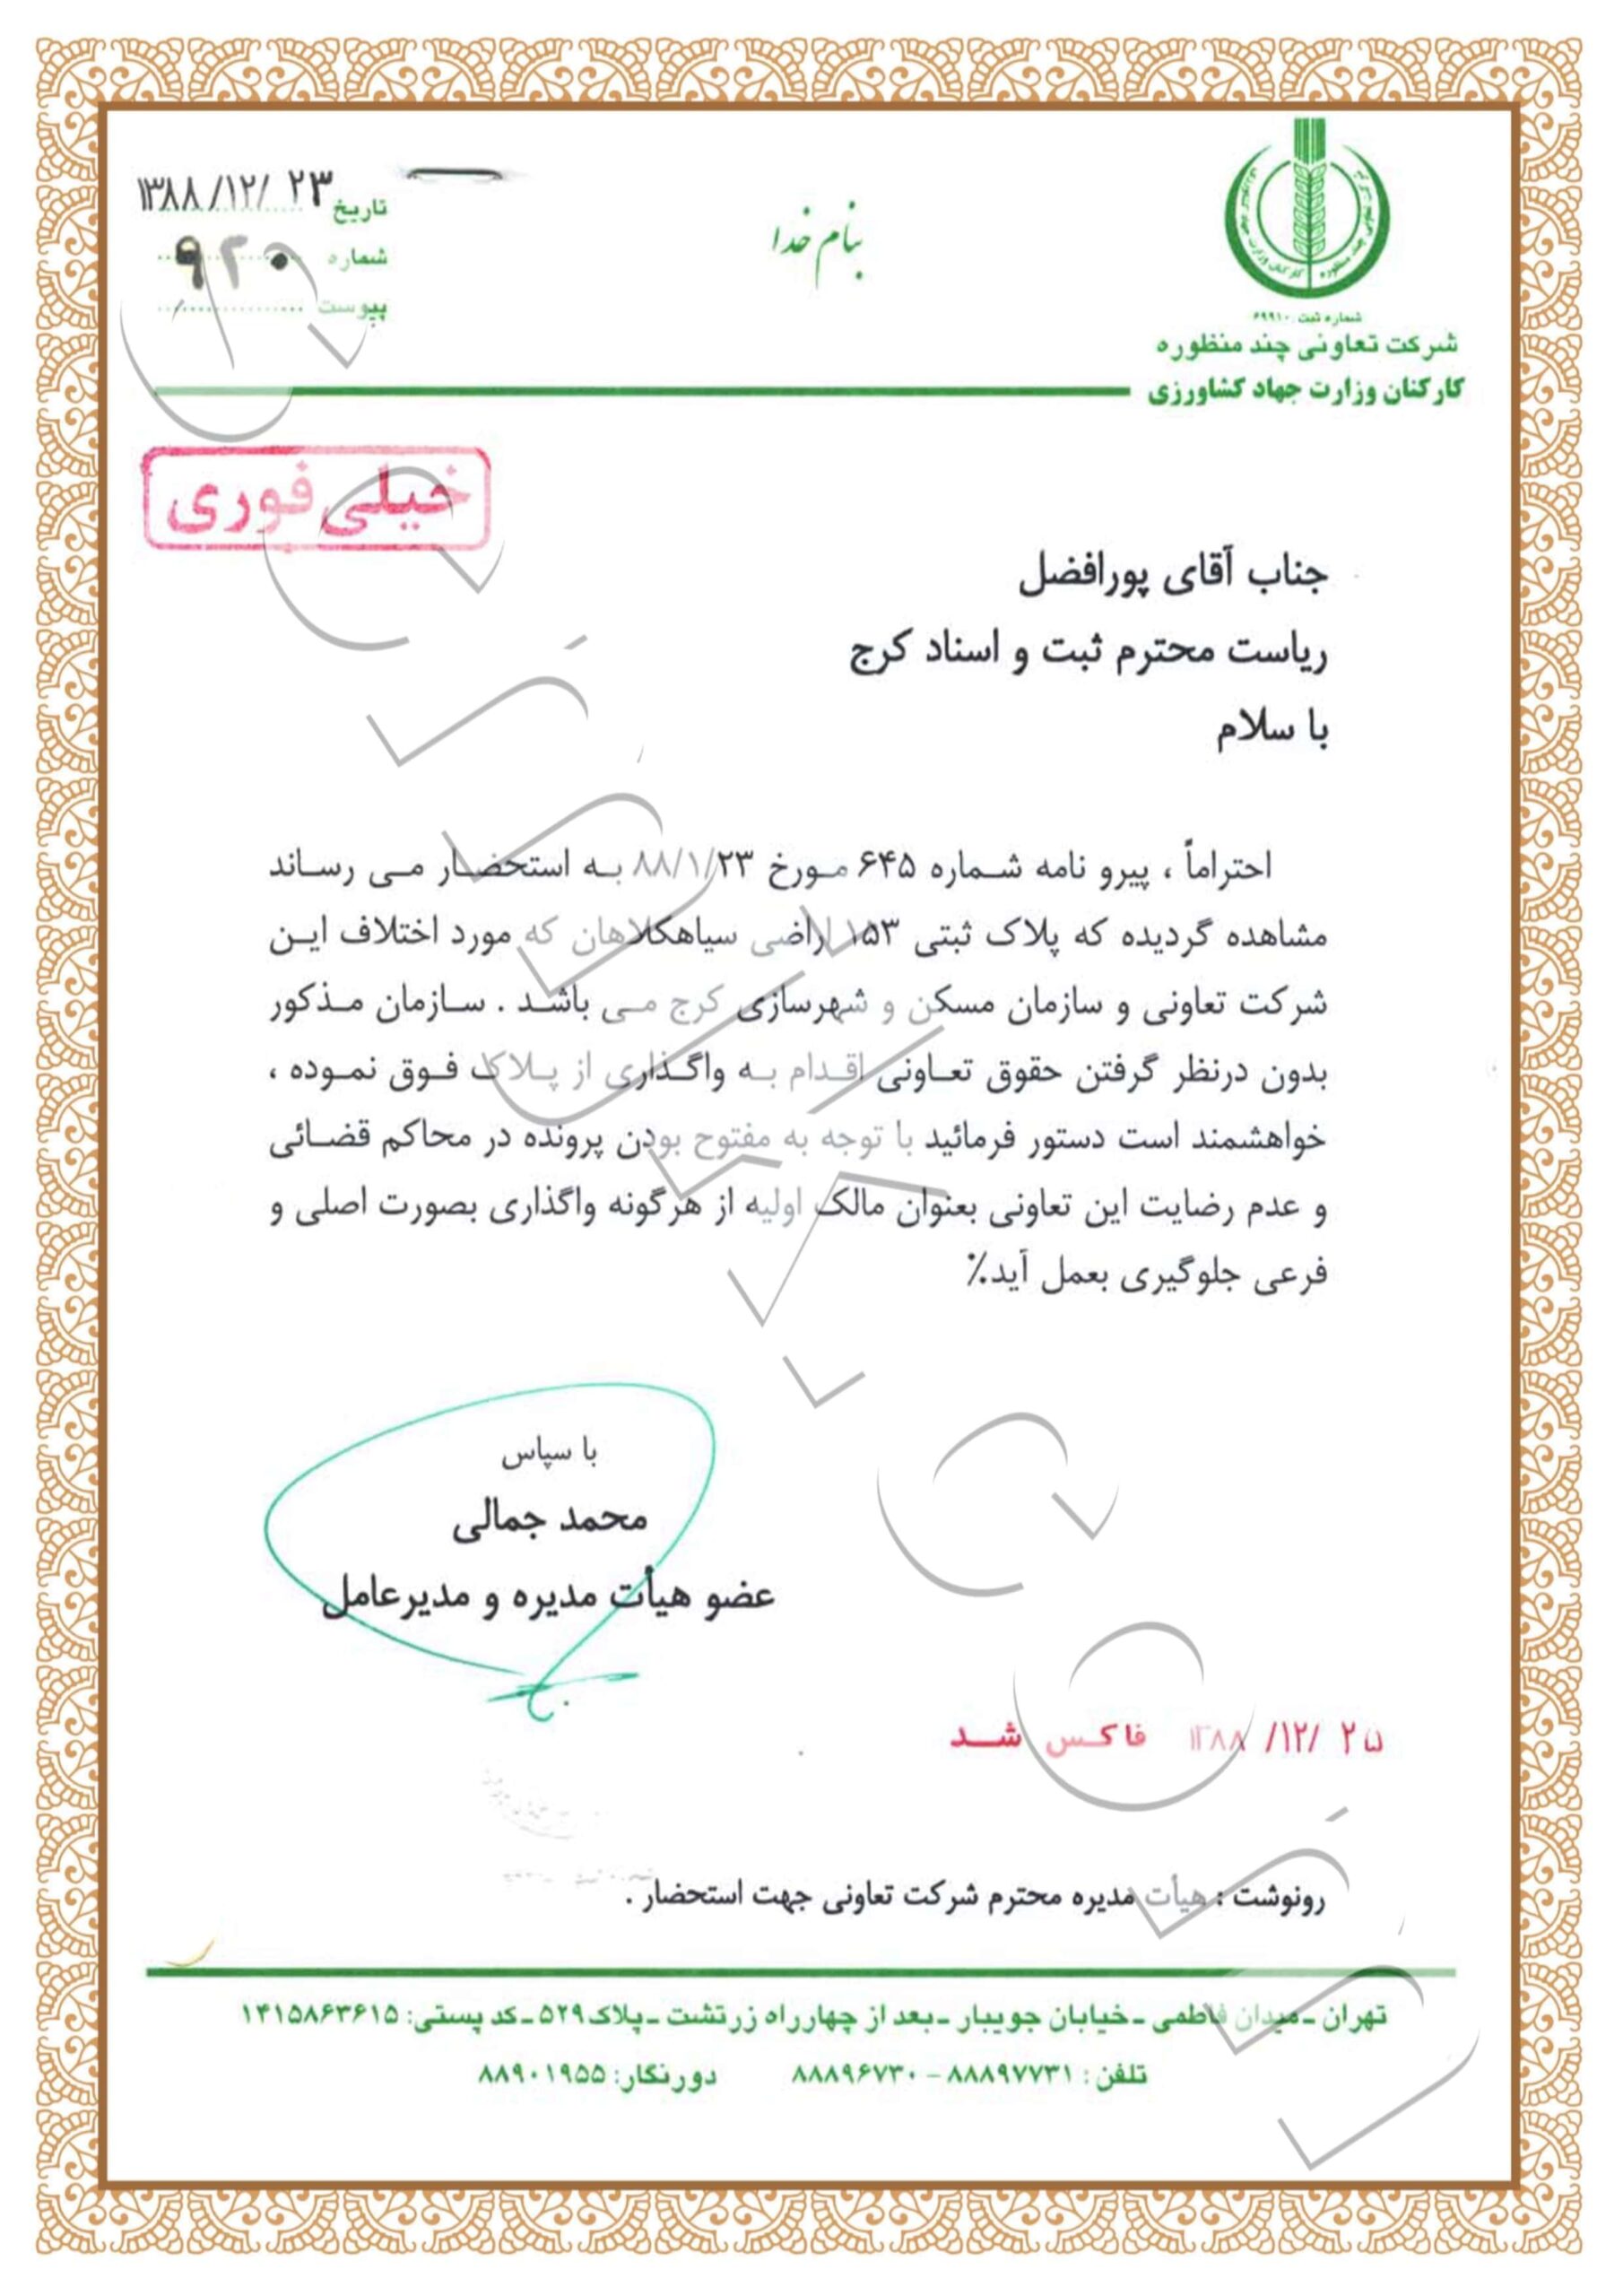 بنام خدا
تاریخ ۱۳۸۸/۱۲/ ۲۳
شماره ۹۲۰
پیوست
شماره ثبت ۶۹۹۱۰
شرکت تعاونی چند منظوره
کارکنان وزارت جهاد کشاورزی
خیلی فوری
جناب آقای پورافضل
ریاست محترم ثبت و اسناد کرج
با سلام
احتراماً ، پیرو نامه شماره ۶۴۵ مورخ ۸۸/۱/۲۳ به استحضار می رساند
مشاهده گردیده که پلاک ثبتی ۱۵۳ اراضی سیاهکلاهان که مورد اختلاف این
شرکت تعاونی و سازمان مسکن و شهرسازی کرج می باشد . سازمان مذکور
بدون درنظر گرفتن حقوق تعاونی اقدام به واگذاری از پلاک فوق نموده ،
خواهشمند است دستور فرمائید با توجه به مفتوح بودن پرونده در محاکم قضائی
و عدم رضایت این تعاونی بعنوان مالک اولیه از هرگونه واگذاری بصورت اصلی و
فرعی جلوگیری بعمل آید٪
با سپاس
محمد جمالی
عضو هیأت مدیره و مدیرعامل
۱۳۸۸ /۱۲/ ۲۵ فاکس شد
رونوشت : هیأت مدیره محترم شرکت تعاونی جهت استحضار .
تهران ـ میدان فاطمی ـ خیابان جویبار ـ بعد از چهارراه زرتشت ـ پلاک ۵۲۹ ـ کد پستی: ۱۴۱۵۸۶۳۶۱۵
تلفن : ۸۸۸۹۷۷۳۱ - ۸۸۸۹۶۷۳۰ دورنگار: ۸۸۹۰۱۹۵۵